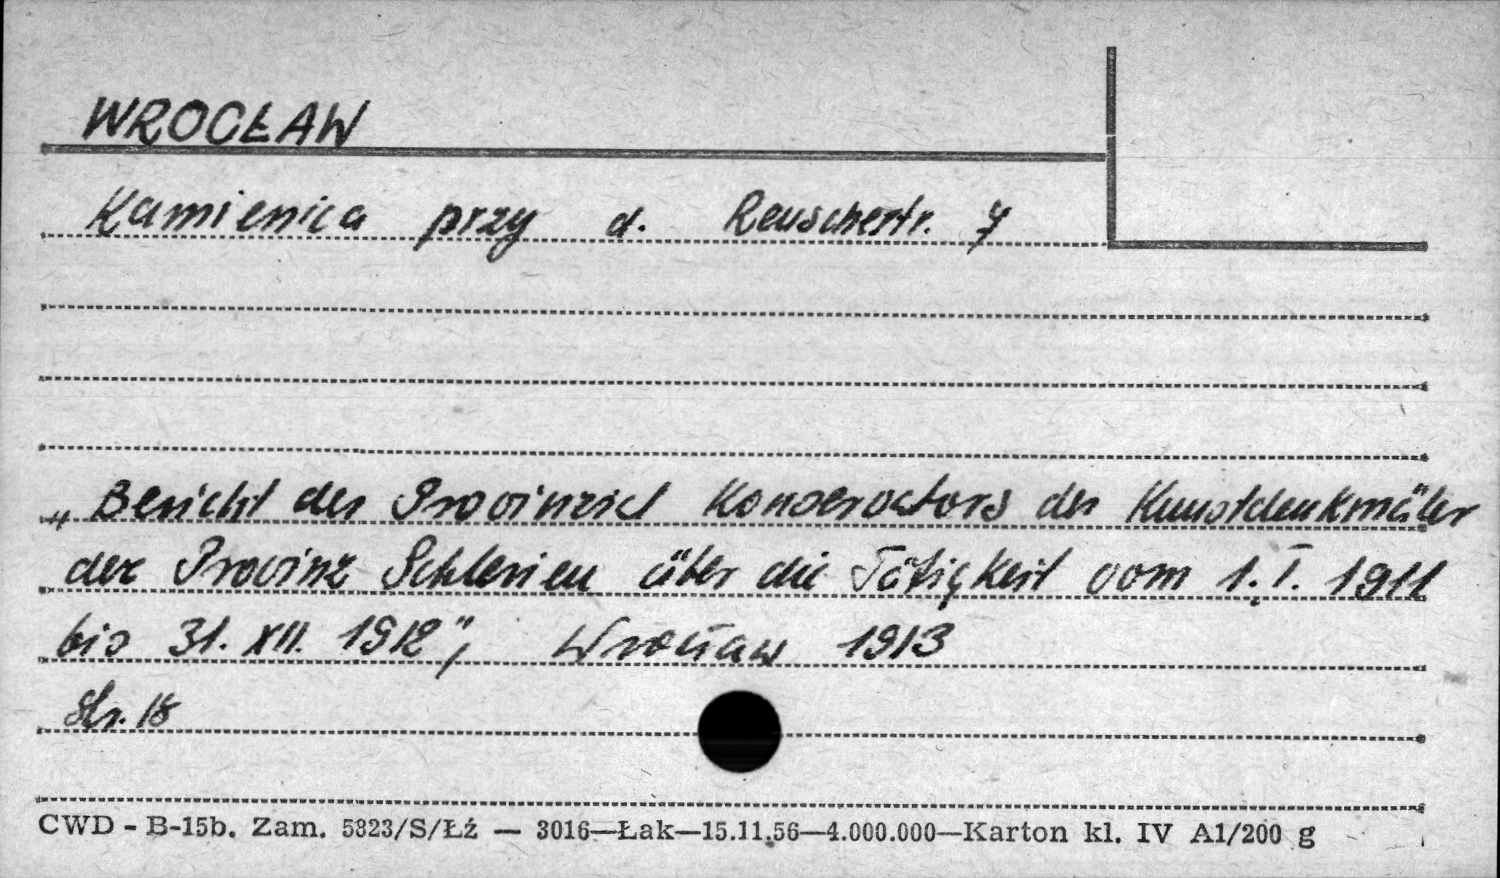 WROCŁAW
Kamienica przy d. Reuscherstr. 7
„Bericht des Provinzial Konservators der Kunstdenkmäler
der Provinz Schlesien über die Tätigkeit vom 1. I. 1911
bis 31. XII. 1912", Wrocław 1913
Str. 18
CWD - B-15b. Zam. 5323/S/Łź — 3016—Łak—15.11.56—4.000.000—Karton kl. IV A1/200 g